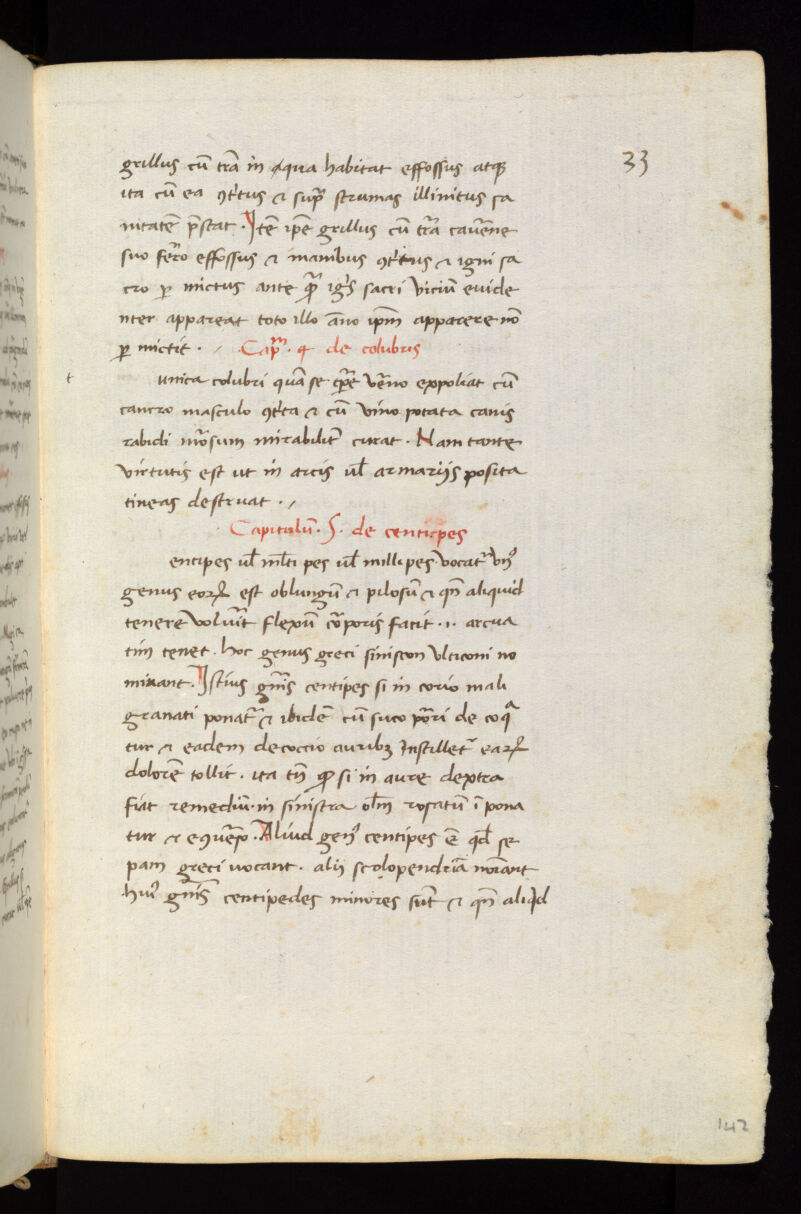 33
grillus cū trā in qua habitat effossus atqꝫ
ita cū ea ꝯtritus ⁊ supra strumas illinitus sa
nitatē prestat. Itē ipē grillus cū trā cauerne
suo ferro effossus ⁊ manibus ꝯtritus ⁊ igni sa
cro ꝑ mictus ante ignis sacri viciū euide
nter appareat toto illo āno ipm̄ apparere nō
ꝑ mictit. Cap. 4 de colubris
t
unica colubri quā se vērno expoliat cū
cancro masculo ꝯtrita ⁊ cū vino potata canis
rabidi morsum mirabilitˀ curat. Nam tante
virtutis est ut in arcis ul armarijs posita
tineas destruat.
Capitulū. 5. de centicpes
entipes ul mlti pes ul millipes vocatˀ vnꝰ
genus eoꝝ est oblungū ⁊ pilosū ⁊ qn̄ aliquid
tenere voluerit flexum corporis facit .i. arcua
tim tenet. hoc genus greci siniscon vlticoni no
minant. Istius gn̄is centipes si in corio mali
granati ponatˀ ⁊ ibidē cū suco porri de coq
tur ⁊ eadem decoccio auribꝫ instilletˀ eaꝝ
dolorē tollit. ita tn̄ si in aure dextra
fiat remediū. in sinistra olm̄ rosatū ī pona
tur ⁊ e ꝯuerso. Aliud genꝰ centipes ē qd se
pam greci vocant. alij scolopendriā noīant
huiꝰ gn̄is centipedes minores sūt ⁊ qn̄ aliqd
142